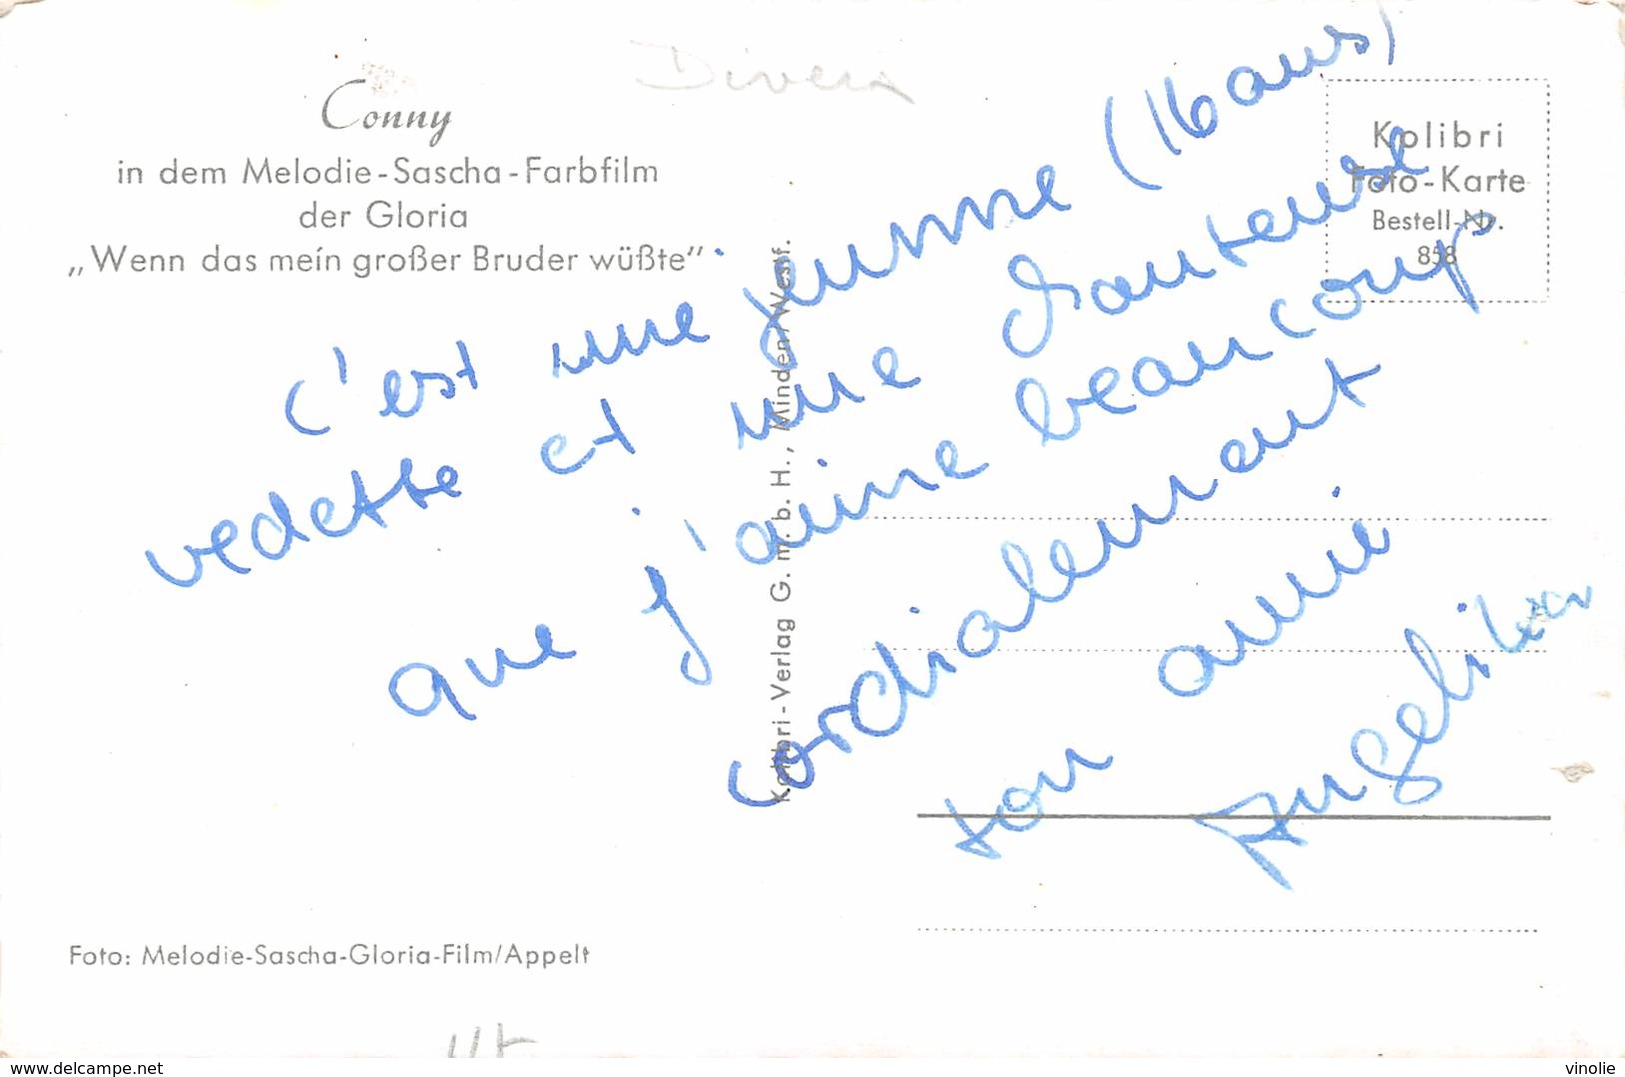 Divers
Conny
in dem Melodie-Sascha-Farbfilm
der Gloria
„Wenn das mein großer Bruder wüßte"
Kolibri
Foto-Karte
Bestell-Nr.
858
c'est une jeunne (16 ans)
vedette et une chanteuse
que j'aime beaucoup
cordialement
ton amie
Kolibri-Verlag G. m. b. H., Minden/Westf.
Foto: Melodie-Sascha-Gloria-Film/Appelt
www.delcampe.net
vinolie